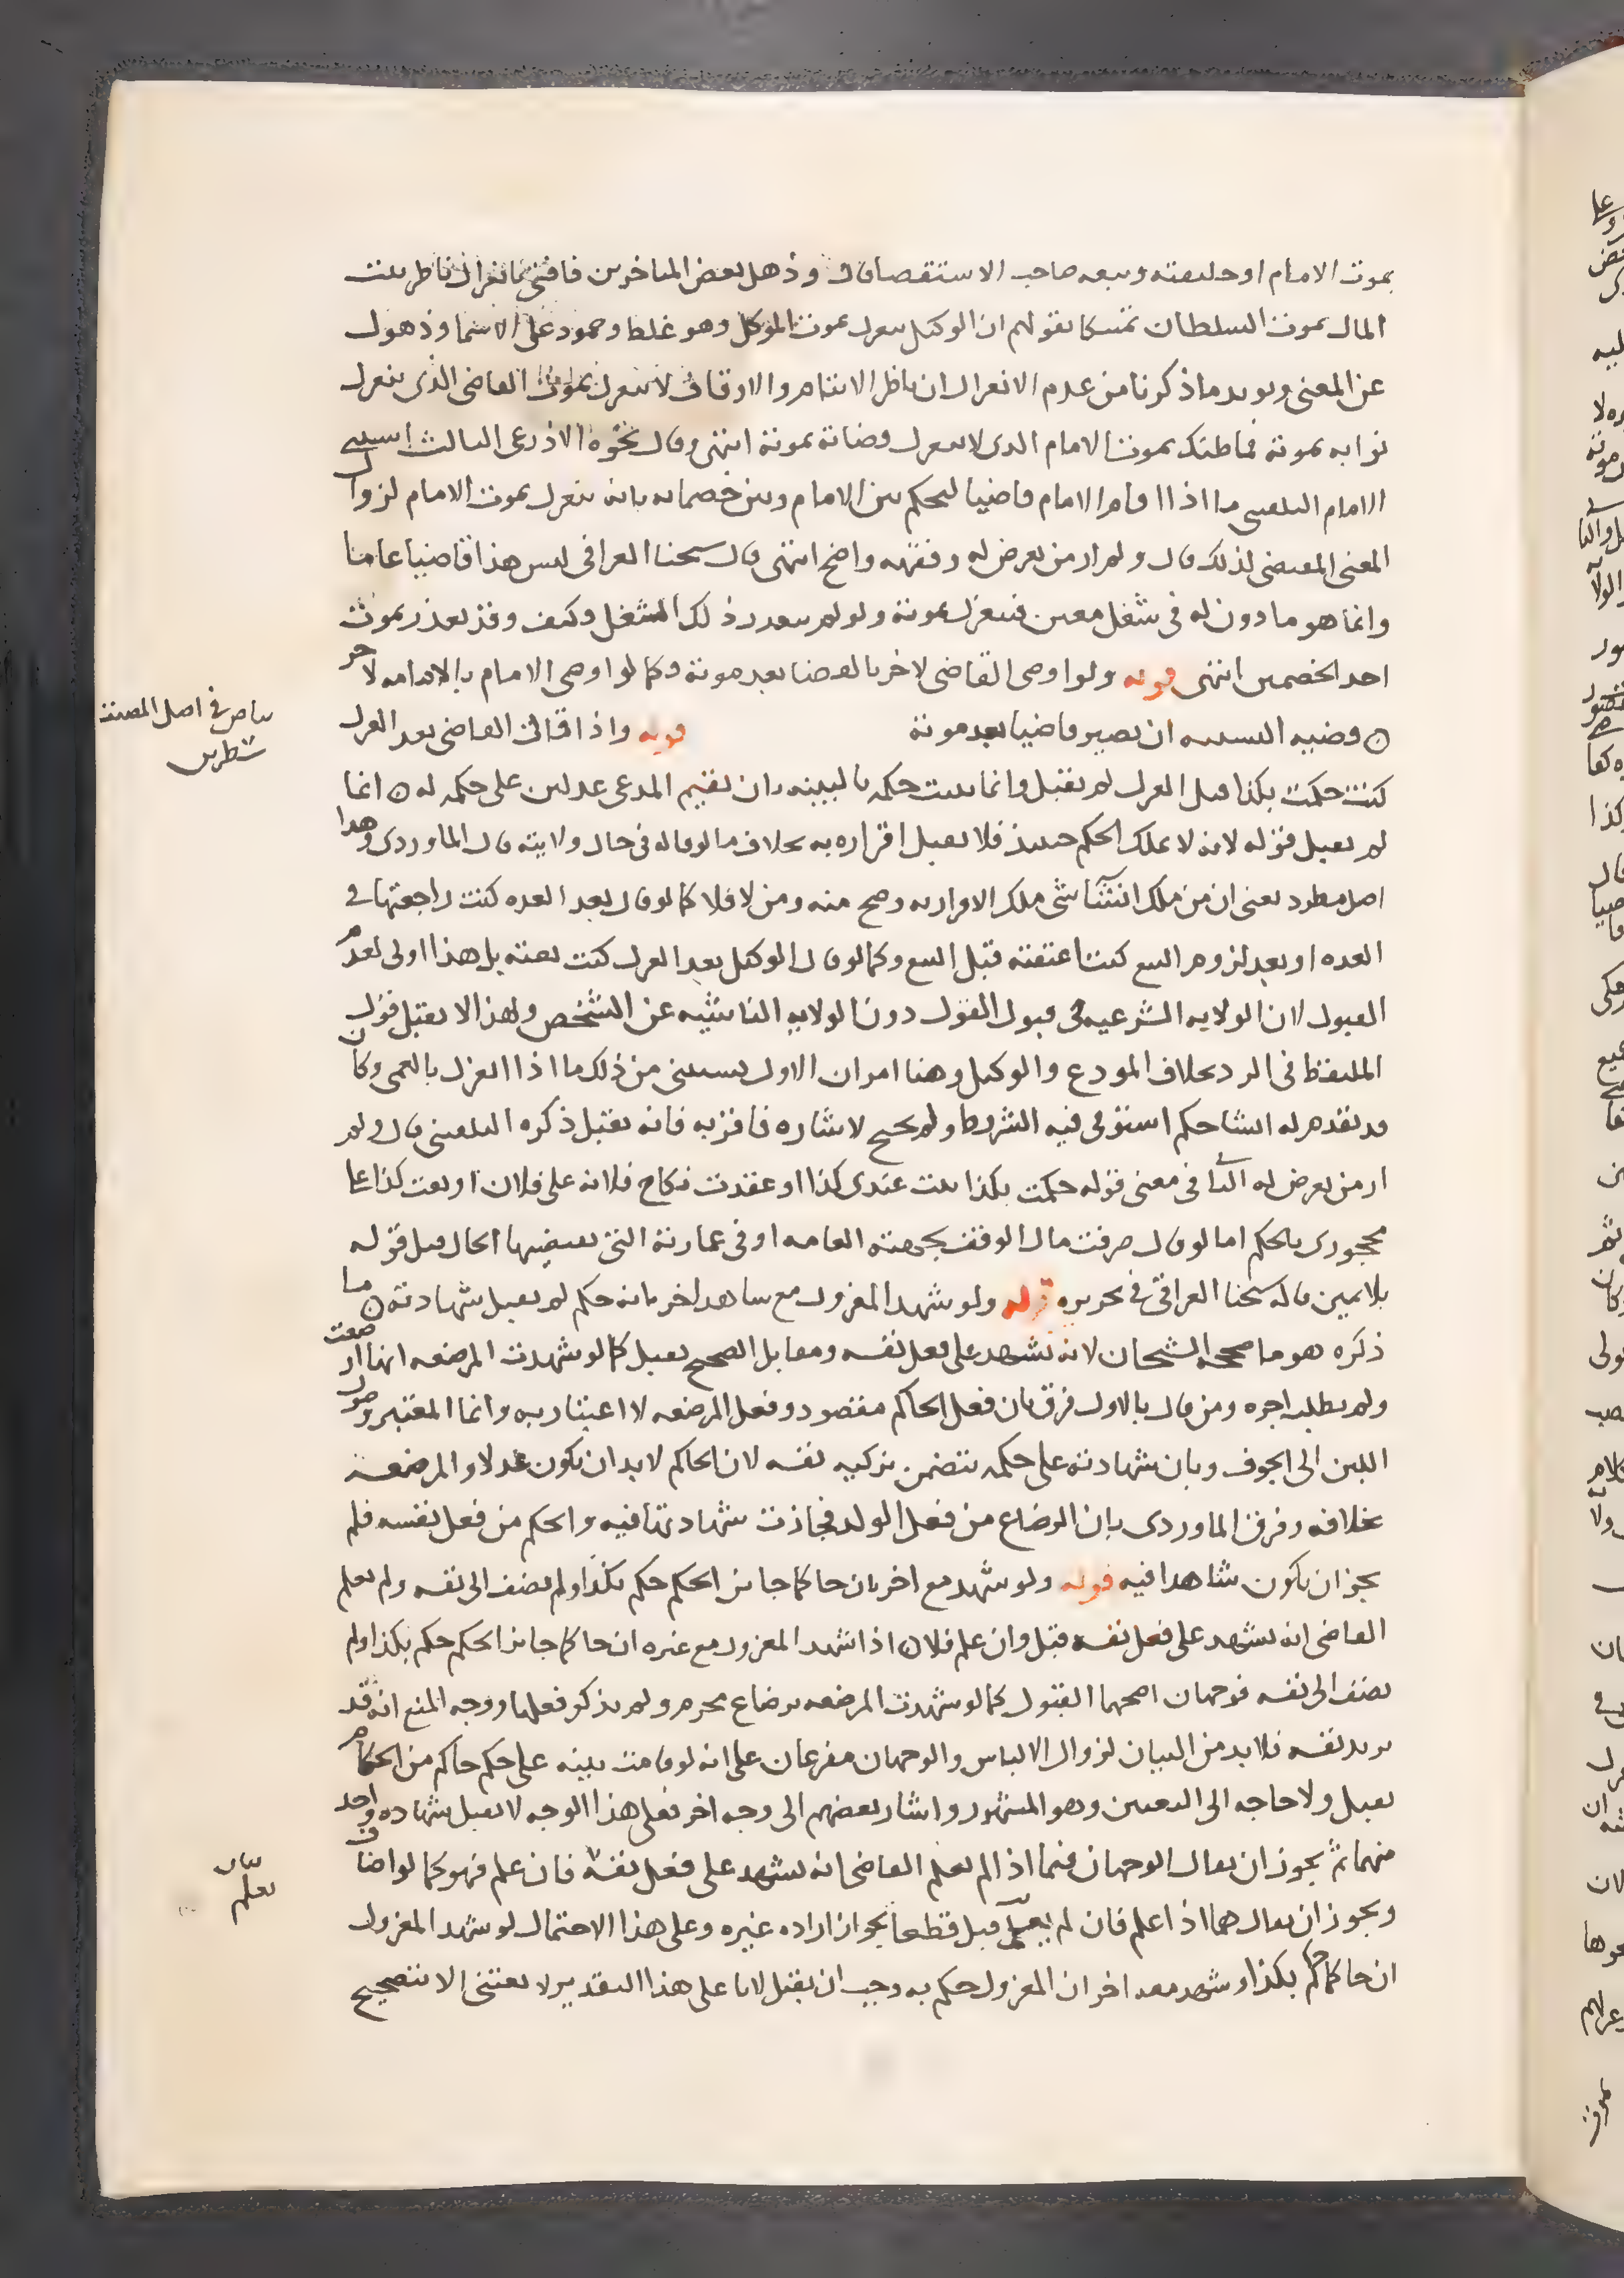 بموت الامام او خليفته وتبعه صاحب الاستقصا قال وذهل بعض المتاخرين فافتى بانعزال ناظر بيت
المال بموت السلطان تمسكا بقولهم ان الوكيل ينعزل بموت الموكل وهو غلط وجمود على الاسما وذهول
عن المعنى ويويد ما ذكرنا من عدم الانعزال ان ناظر الايتام والاوقاف لا ينعزل بموت القاضي الذي ينعزل
نوابه بموته فما ظنك بموت الامام الذي لا ينعزل قضاته بموته انتهى وقال نحوه الاذرعي الثالث استثنى
الامام البلقيني ما اذا اقام الامام قاضيا ليحكم بين الامام وبين خصمائه بانه ينعزل بموت الامام لزوال
المعنى المقتضي لذلك قال ولم ار من تعرض له وفقهه واضح انتهى قال شيخنا العراقي ليس هذا قاضيا عاما
وانما هو ماذون له في شغل معين فينعزل بموته ولو لم يتعذر ذلك الشغل وكيف وقد تعذر بموت
احد الخصمين انتهى قوله ولو اوصى القاضي لاخر بالقضا بعد موته وكما لو اوصى الامام بالامامه لاخر
ه قضيه التشبيه ان يصير قاضيا بعد موته قوله واذا قال القاضي بعد العزل
بياض في اصل المصنف
سطرين
كنت حكمت بكذا قبل العزل لم يقبل وانما يثبت حكمه بالبينه بان يقيم المدعي عدلين على حكمه له ه انما
لم يقبل قوله لانه لا يملك الحكم حينئذ فلا يقبل اقراره به بخلاف ما لو قاله في حال ولايته قال الماوردي وهذا
اصل مطرد يعني ان من ملك انشا شي ملك الاقرار به وصح منه ومن لا فلا كما لو قال بعد العده كنت راجعتها في
العده او بعد لزوم البيع كنت اعتقته قبل البيع وكما لو قال الوكيل بعد العزل كنت بعته بل هذا اولى بعدم
القبول لان الولايه الشرعيه في قبول القول دون الولايه الناشيه عن الشخص ولهذا لا يقبل قول
الملتقط في الرد بخلاف المودع والوكيل وهنا امران الاول يستثنى من ذلك ما اذا انعزل بالعمى وكان
قد تقدم له انشا حكم استوفى فيه الشروط ولم يحتج لاشاره فاقر به فانه يقبل ذكره البلقيني قال ولم
ار من تعرض له الثاني في معنى قوله حكمت بكذا ثبت عندي كذا او عقدت نكاح فلانه على فلان او بعت كذا على
محجوري بالحكم اما لو قال صرفت مال الوقف بجهته العامه او في عمارته التي يقتضيها الحال قبل قوله
بلا يمين قاله شيخنا العراقي في تحريره قوله ولو شهد المعزول مع شاهد اخر بانه حكم لم يقبل شهادته ه ما
ذكره هو ما صححه الشيخان لانه يشهد على فعل نفسه ومقابل الصحيح يقبل كما لو شهدت المرضعه انها ارضعت
ولم تطلب اجره ومن قال بالاول فرق بان فعل الحاكم مقصود وفعل المرضعه لا اعتبار به وانما المعتبر وصول
اللبن الى الجوف وبان شهادته على حكمه يتضمن تزكيه نفسه لان الحاكم لا بد ان يكون عدلا والمرضعه
بخلافه وفرق الماوردي بان الرضاع من فعل الولد فجازت شهادتها فيه والحكم من فعل نفسه فلم
يجز ان يكون شاهدا فيه قوله ولو شهد مع اخر بان حاكما جايز الحكم حكم بكذا ولم يضف الى نفسه ولم يعلم
القاضي انه يشهد على فعل نفسه قبل وان علم فلا ه اذا شهد المعزول مع غيره ان حاكما جايز الحكم حكم بكذا ولم
يضف الى نفسه فوجهان اصحهما القبول كما لو شهدت المرضعه برضاع محرم ولم يذكر فعلها ووجه المنع انه قد
يريد نفسه فلا بد من البيان لزوال الالباس والوجهان مفرعان على انه لو قامت بينه على حكم حاكم من الحكام
يقبل ولا حاجه الى التعيين وهو المشهور واشار بعضهم الى وجه اخر فعلى هذا الوجه لا يقبل شهاده واحد
منهما ثم يجوز ان يقال الوجهان فيما اذا لم يعلم القاضي انه يشهد على فعل نفسه فان علم فهو كما لو اضاف
ويجوز ان يقال هما اذا علم فان لم يعلم قبل قطعا بجواز اراده غيره وعلى هذا الاحتمال لو شهد المعزول
بيان
يعلم
ان حاكما حكم بكذا وشهد معه اخر ان المعزول حكم به وجب ان يقبل لانا على هذا التقدير لا نعتني الا بتصحيح